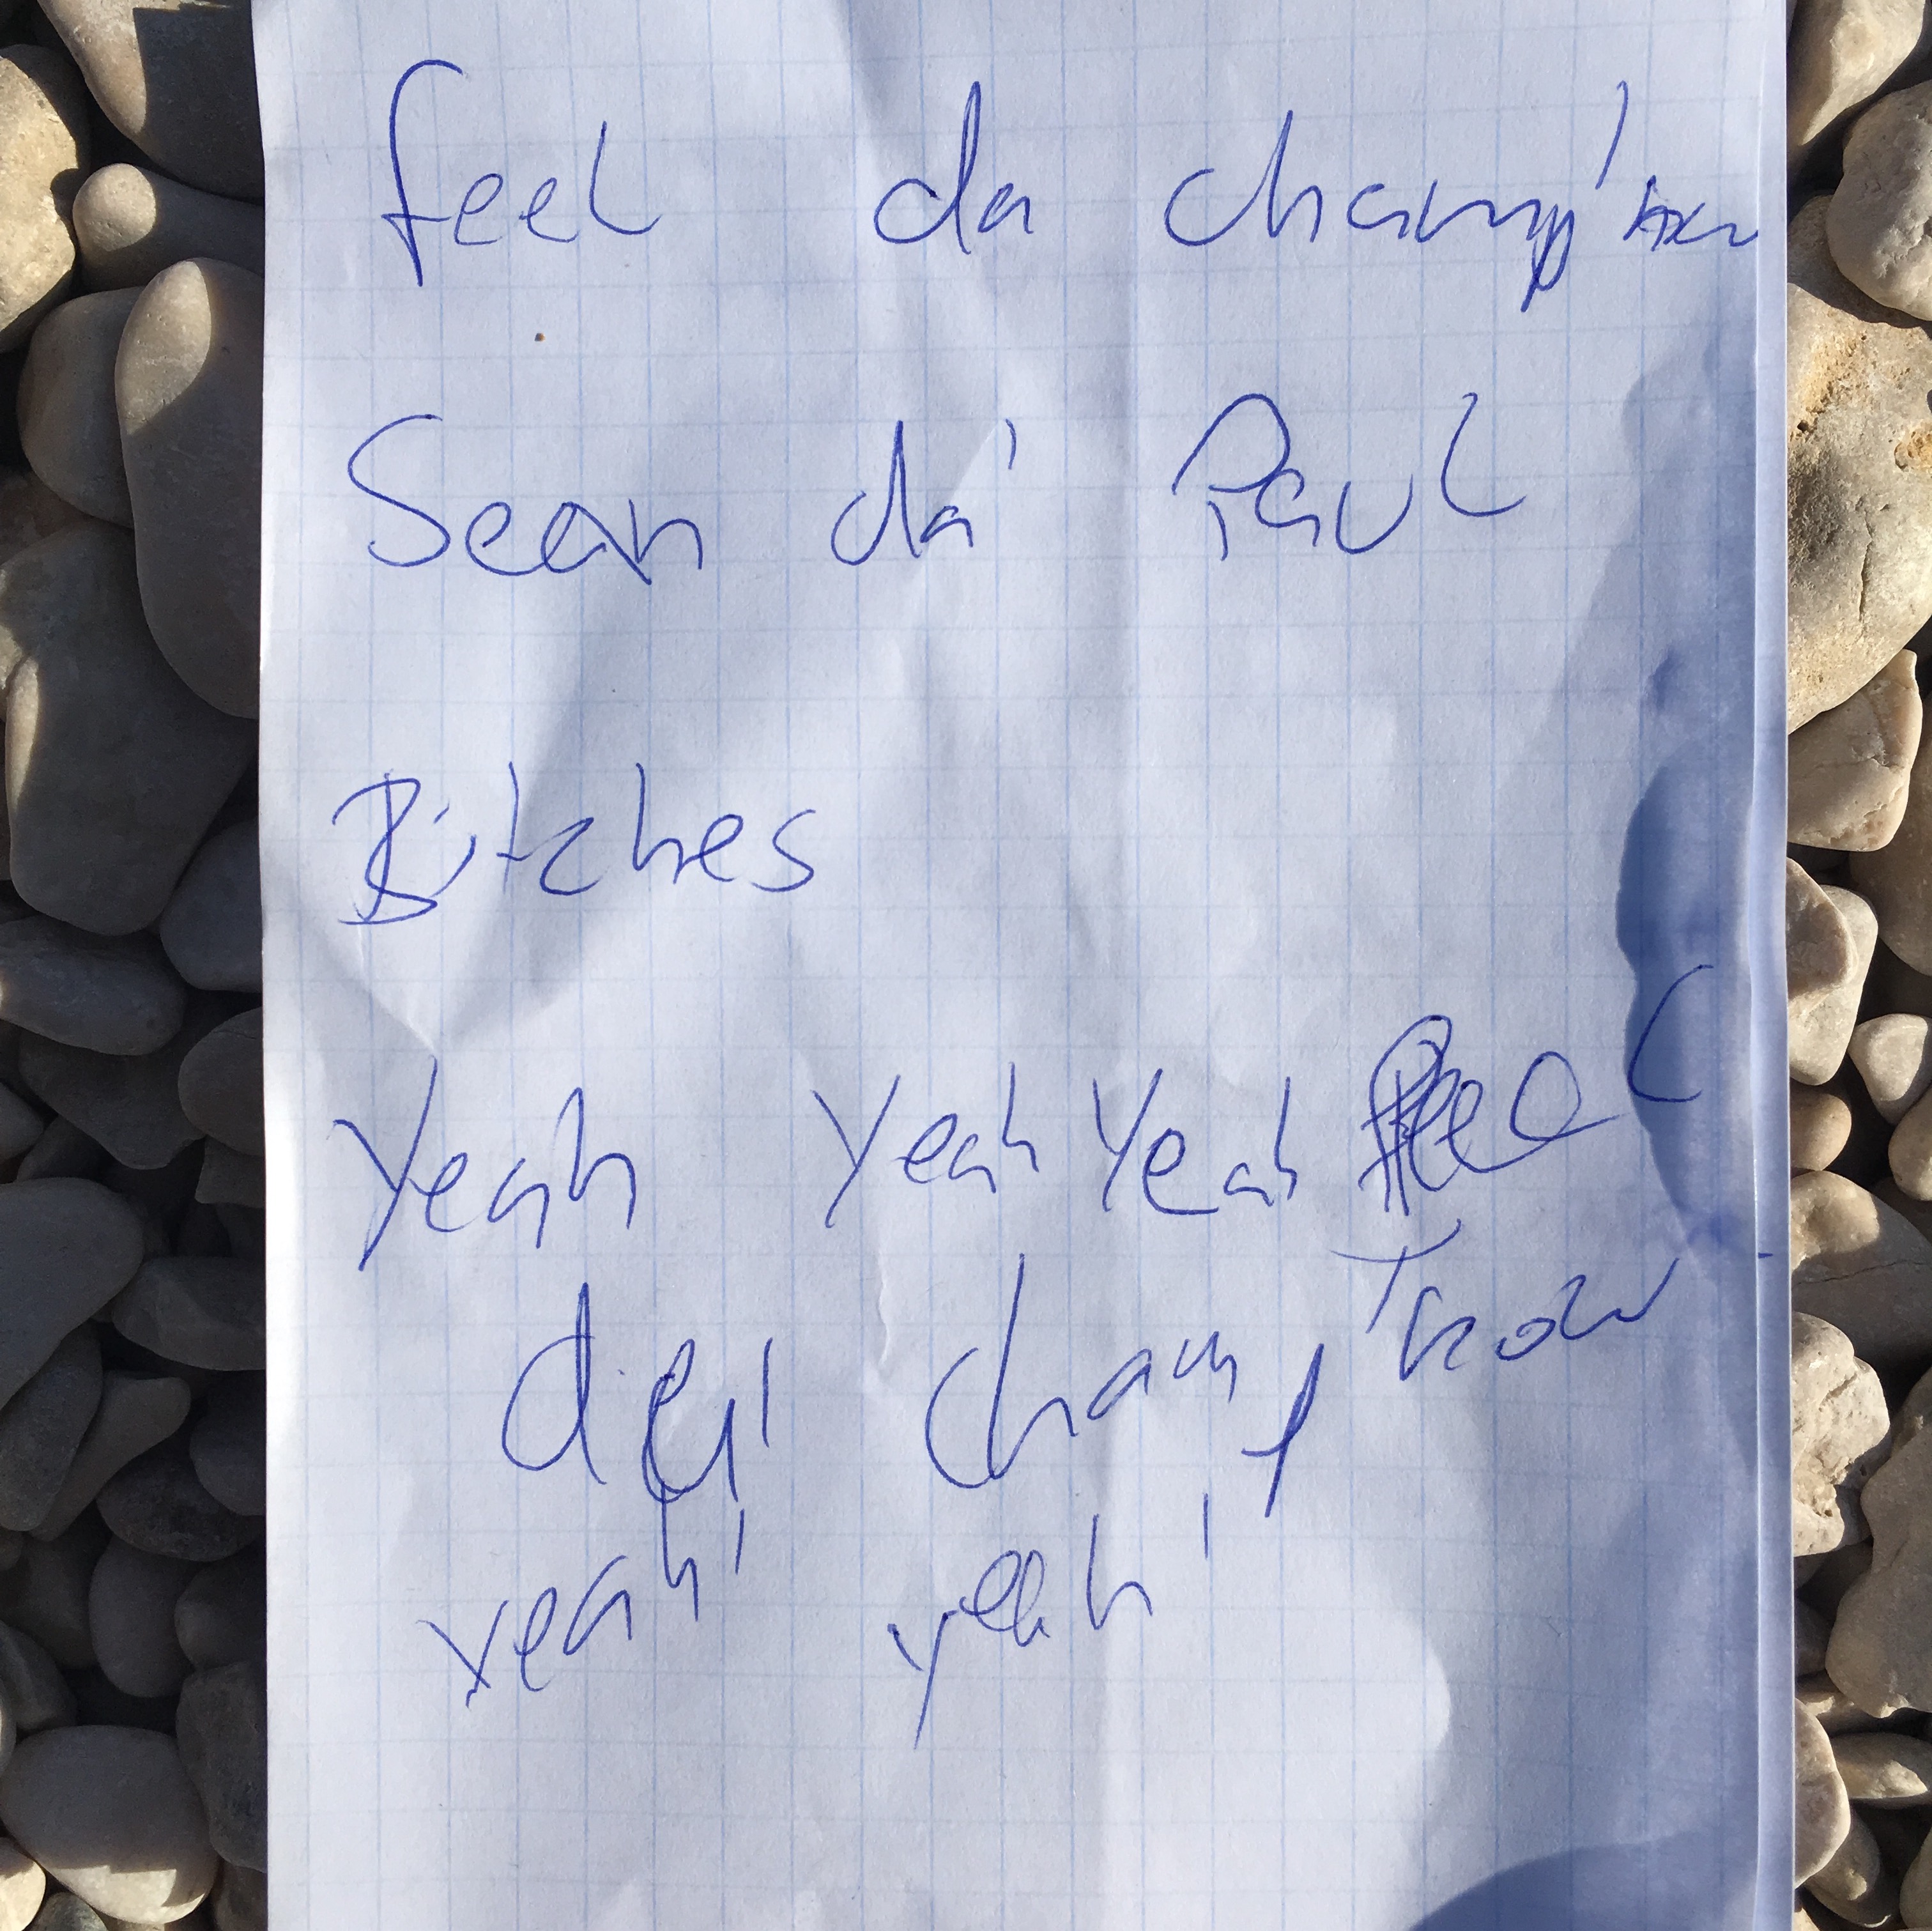 feel da champ'
Sean da' Paul
Bitches
Yeah Yeah Yeah feel
champ
yeah' yeah'